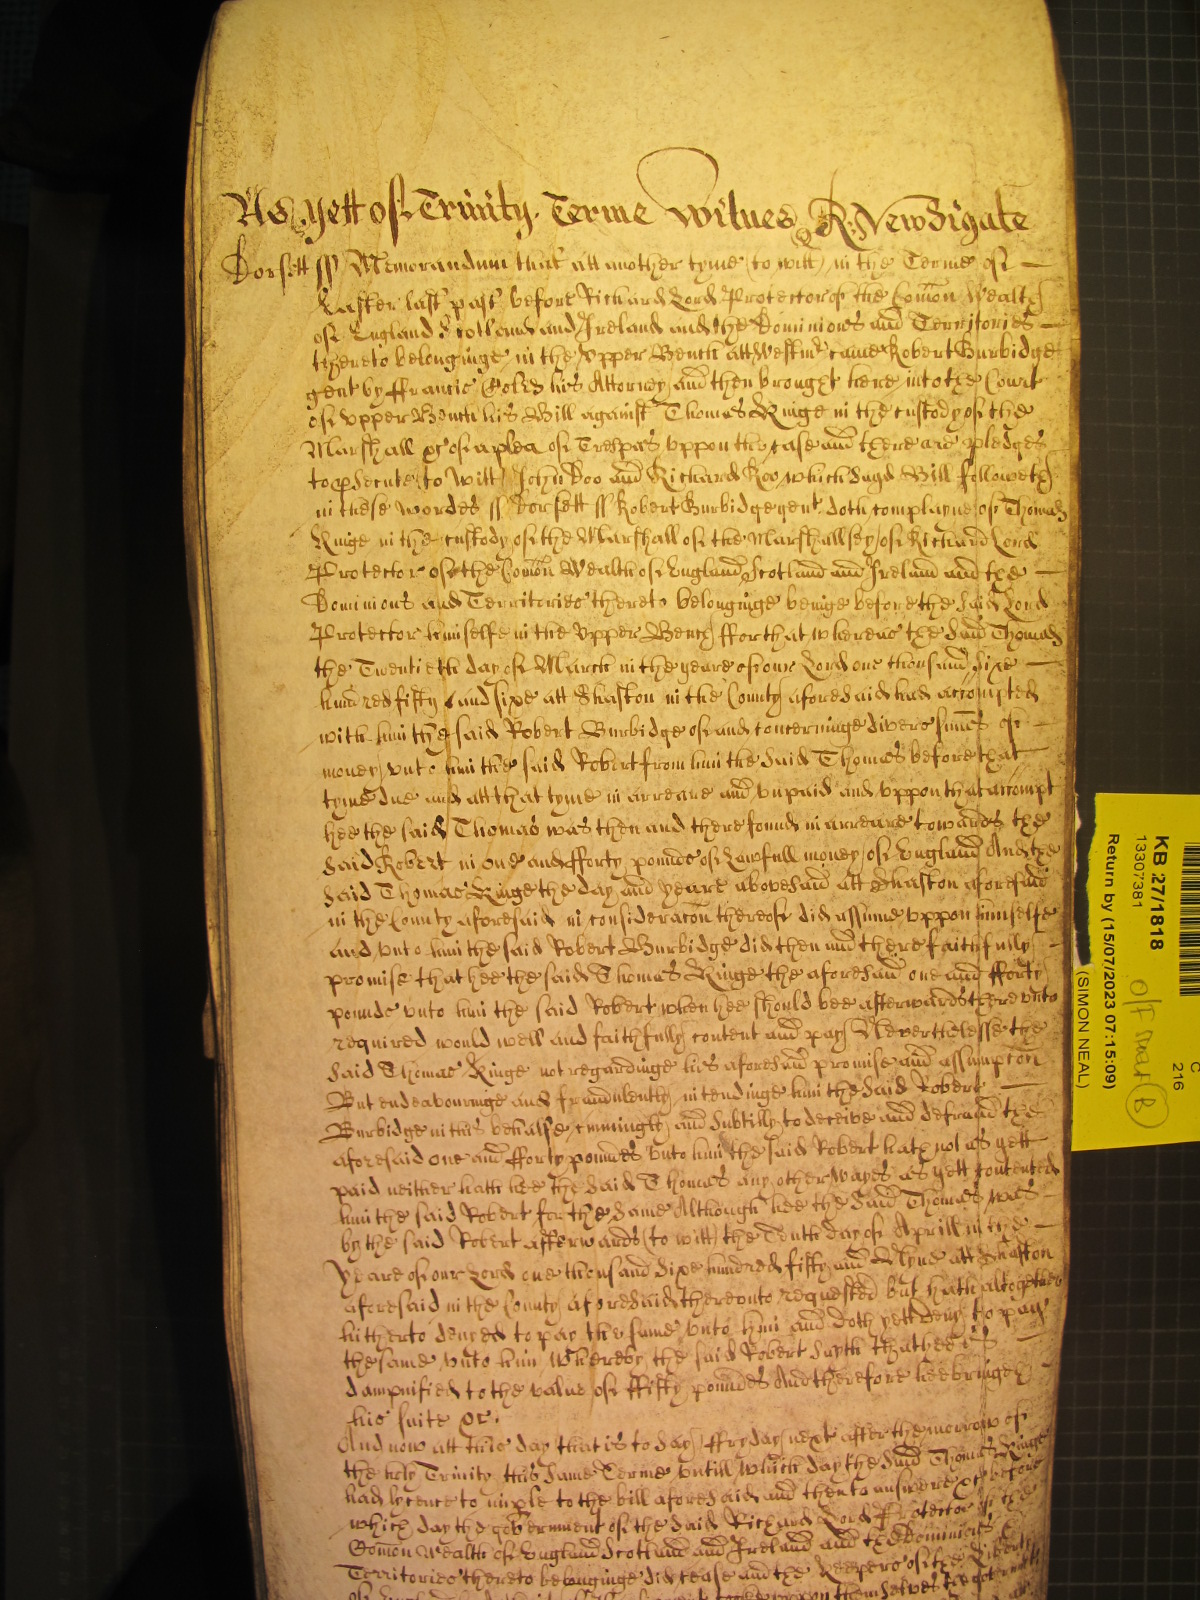 As yett of Trinity Terme Witnes R: Newdigate
Dorsett ss Memorandum that att another tyme (to witt) in the Terme of
Easter last past before Richard Lord Protector of the Com̄on Wealth
of England Scotland and Ireland and the Dominions and Territories
thereto belonginge in the Vpper Bench att Westmr came Robert Burbidge
gent by ffrancis his Attorney and then brought here into the Court
of Vpper Bench his Bill against Thomas Ringe in the custody of the
Marshall &c of a plea of Trespas vppon the case and there are pledges
to psecute (to witt) John Doo and Richard Roo which sayd Bill followeth
in these wordes ss Dorsett ss Robert Burbidge gent doth complayne of Thomas
Ringe in the custody of the Marshall of the Marshallsey of Richard Lord
Protector of the Com̄on Wealth of England Scotland and Ireland and the
Dominions and Territories thereto belonginge beinge before the said Lord
Protector himselfe in the Vpper Bench ffor that whereas the said Thomas
the Twentieth day of March in the yeare of our Lord one thousand sixe
hundred fifty and sixe att Shaston in the County aforesaid had accompted
with him the said Robert Burbidge of and concerninge divers sum̄es of
money vnto him the said Robert from him the said Thomas before that
tyme due and att that tyme in arreare and vnpaid and vppon that accompt
hee the said Thomas was then and there found in arreare towards the
said Robert in one and fforty pounds of lawfull money of England And the
said Thomas Ringe the day and yeare abovesaid att Shaston aforesaid
in the County aforesaid in consideracon thereof did assume vppon himselfe
and vnto him the said Robert Burbidge did then and there faithfully
promise that hee the said Thomas Ringe the aforesaid one and fforty
pounds vnto him the said Robert when hee should bee afterwards therevnto
required would well and faithfully content and pay Neverthelesse the
said Thomas Ringe not regardinge his aforesaid promise and assumpcon
But endeavouringe and fraudulently intendinge him the said Robert
Burbidge in this behalfe cunningly and subtilly to deceive and defraud the
aforesaid one and fforty pounds vnto him the said Robert hath not as yett
paid neither hath hee the said Thomas any other wayes as yett contented
him the said Robert for the same Although hee the said Thomas was
by the said Robert afterwards (to witt) the Tenth day of Aprill in the
yeare of our Lord one thousand sixe hundred fifty and Nyne att Shaston
aforesaid in the County aforesaid therevnto requested but hath altogether
hitherto denyed to pay the same vnto him and doth yett deny to pay
the same vnto him Whereby the said Robert sayth that hee is
dampnified to the value of ffifty pounds And therefore hee bringeth
his suite &c.
And now att this day that is to say ffryday next after the morrow of
the holy Trinity this same Terme vntill which day the said Thomas Ringe
had lycence to imple to the bill aforesaid and then to answere &c before
which day the government of the said Richard Lord Protector of the
Com̄on Wealth of England Scotland and Ireland and the Dominions &
Territories thereto belonginge did cease and the Keepers of the Liberty
of tooke vppon themselves the
KB 27/1818
13307381
Return by (15/07/2023 07:15:09)
(SIMON NEAL)
C
216